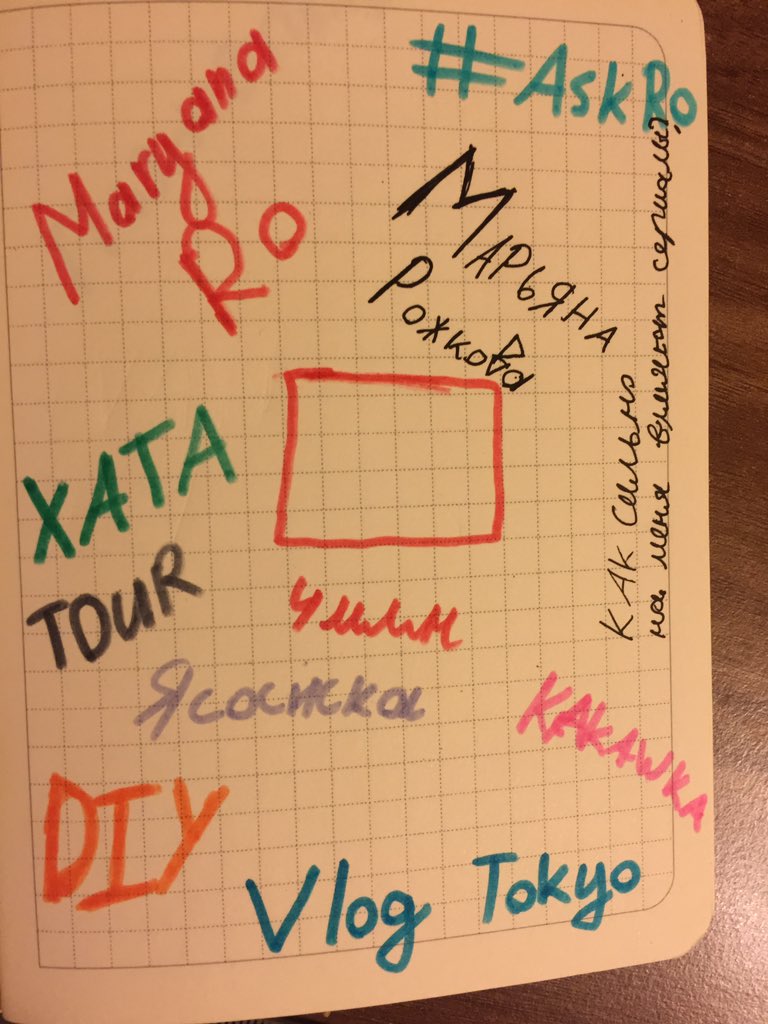 #AskRo
Maryana
Ro
МАРЬЯНА
Рожкова
КАК Сильно
на меня влияют сериалы?
ХАТА
TOUR
Чилим
Ясажка
KAKAWKA
DIY
Vlog Tokyo